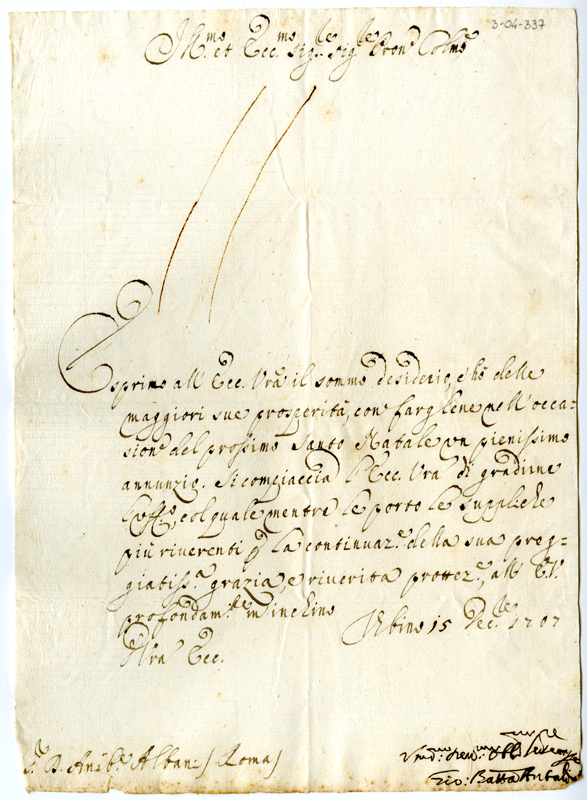 3-04-337
Ill.mo et Ecc.mo Sig.re Sig.re Pron Colmo
Esprimo all' Ecc. Vra il sommo desiderio, c'hò delle
maggiori sue prosperità, con fargliene nell'occa-
sione del prossimo Santo Natale un pienissimo
annunzio. Si compiaccia l'Ecc. Vra di gradirne
l'uff.o, col quale mentre le porto le suppliche
più riverenti p la continuaz.e della sua preg-
giatiss.a grazia, e riverita protez.e, all' E.V.
profondam.te m'inchino Urbino 15 Dec.re 1707
Vra Ecc.
D. Anibe Alban: / Roma /
Um.o Dev.mo Obl.
Gio: Batta